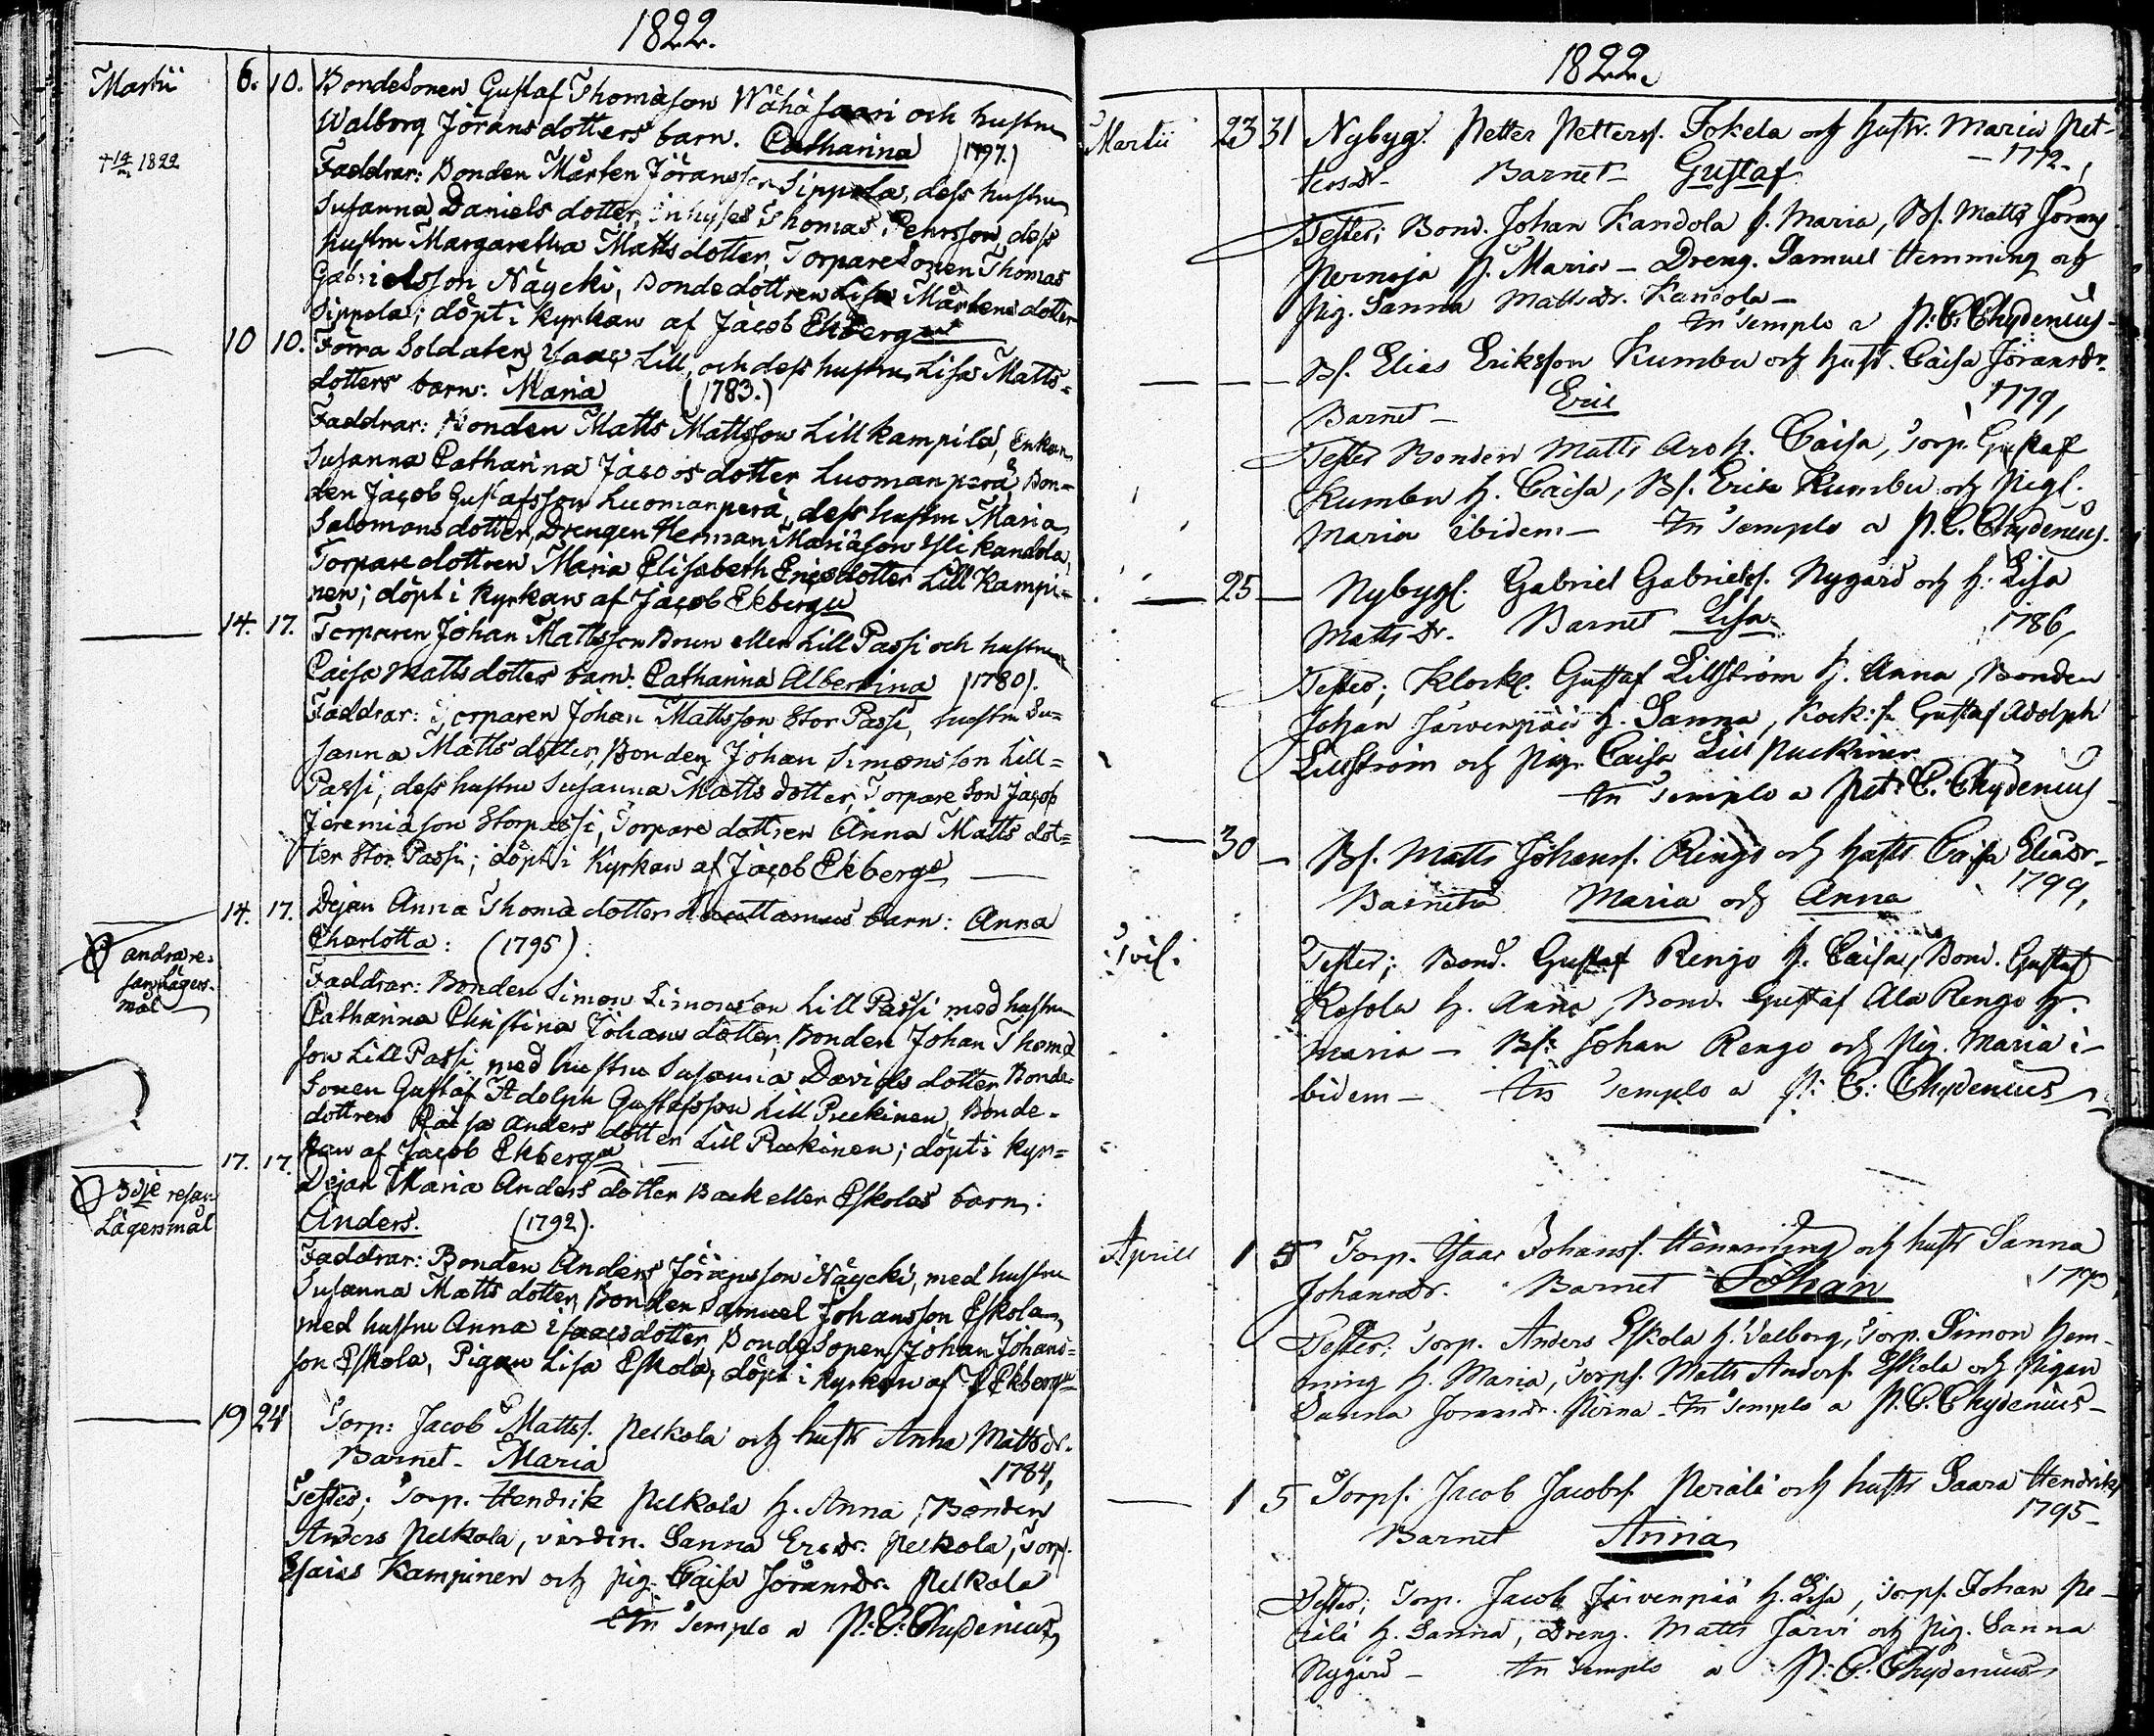 1822.
Martii 6. 10. Bondesonen Gustaf Thomasson Wähäsaari och hustru
Walborg Jöransdotters barn. Catharina (1797.)
+ 1822
Faddrar: Bonden Mårten Jöransson Sippola, dess hustru
Susanna Danielsdotter, Inhyses Thomas Pehrsson, dess
hustru Margaretha Mattsdotter, TorpareSonen Thomas
Gabrielsson Näycki, Bondedottren Lisa Mårtensdotter
Sippola; döpt i kyrkan af Jacob Ekberg
— 10 10. Förra Soldaten Isaac Lill, och dess hustru Lisa Matts=
dotters barn: Maria (1783.)
Faddrar: Bonden Matts Mattsson Lillkampila, Enkan
Susanna Catharina Jacobsdotter Luomanperä, Bon=
den Jacob Gustafsson Luomanperä, dess hustru Maria
Salomonsdotter, Drengen Herman Mariäson Ylikandola,
Torparedottren Maria Elisabeth Ericsdotter Lill Kampi=
nen; döpt i kyrkan af Jacob Ekberg
— 14. 17. Torparen Johan Mattsson Brun eller Lill Passi och hustru
Caisa Mattsdotters barn: Catharina Albertina (1780).
Faddrar: Torparen Johan Mattsson Stor Passi, hustru Su=
sanna Mattsdotter, Bonden Johan Simonsson Lill=
Passi, dess hustru Susanna Mattsdotter, TorpareSon Jacob
Jeremiason Storpassi, Torparedottren Anna Mattsdot=
ter Stor Passi; döpt i Kyrkan af Jacob Ekberg
— 14. 17. Dejan Anna Thomädotter barn: Anna
Charlotta: (1795).
andra re=
san Lägers=
mål
Faddrar: Bonden Simon Simonsson Lill Passi med hustru
Catharina Christina Johansdotter, Bonden Johan Thomä
son Lill Passi med hustru Susanna Davidsdotter, Bonde=
Sonen Gustaf Adolph Gustafsson Lill Puckinen, Bonde=
dottren Caisa Andersdotter Lill Puckinen; döpt i kyr=
kan af Jacob Ekberg
— 17. 17. Dejan Maria Andersdotter Back eller Eskolas barn:
Anders. (1792).
3dje resan
Lägersmål
Faddrar: Bonden Anders Jöransson Näycki, med hustru
Susanna Mattsdotter, Bonden Samuel Johansson Eskola,
med hustru Anna Isaacsdotter, BondeSonen Johan Johans=
son Eskola, Pigan Lisa Eskola; döpt i kyrkan af J Ekberg
— 19 24 Torp: Jacob Mattss. Pelkola och hustr Anna Mattsdr.
Barnet - Maria 1784,
Testes; Torp. Hendrik Pelkola h. Anna, Bonden
Anders Pelkola, värdin. Sanna Ersdr. Pelkola, Torp.
Esaias Kampinen och pig. Caisa Jöransdr. Pelkola
In Templo a P: C: Chydenius
1822.
Martii 23 31 Nybygg. Petter Petterss. Jokela och hustr. Maria Pet-
tersdr- Barnet - Gustaf - 1772 -,
Testes; Bond. Johan Kandola h. Maria, Bs. Matts Jörans
Pernoja h. Maria - Dreng. Samuel Hemming och
pig. Sanna Mattsdr. Kandola -
In Templo a P: C: Chydenius -
— — — Bs. Elias Eriksson Kumbu och hust. Caisa Jöransdr.
Barnet - Eric 1779,
Testes Bonden Matts Aro h. Caisa, Torp. Gustaf
Kumbu h. Caisa, Bs. Erik Kumbu och pig.
Maria ibidem - In Templo a P. C. Chydenius.
— 25 — Nybygg. Gabriel Gabrielss. Nygård och h. Lisa
Mattsdr. Barnet Lisa 1786,
Testes; Klock. Gustaf Lillström h. Anna, Bonden
Johan Järvenpää h. Sanna, Klock: s. Gustaf Adolph
Lillström och pig. Caisa Lill Puckinen
In Templo a Pet: C. Chydenius
— 30 — Bs. Matts Johanss. Rengo och hustr Caisa Eliædr-
Barnen Maria och Anna 1799,
Tvil.
Testes; Bond. Gustaf Rengo h. Caisa, Bond. Gustaf
Rosola h. Anna, Bond. Gustaf Ala Rengo h.
Maria - Bs. Johan Rengo och pig. Maria i-
bidem - In Templo a P: C: Chydenius
Aprill 1 5 Torp. Isaac Johanss. Hemming och hustr Sanna
Johansdr. Barnet Johan
Testes: Torp. Anders Eskola h. Valborg, Torp. Simon Hem-
ming h. Maria, Torps. Matts Anderss. Eskola och pigan
Sanna Joransdr. - In Templo a P. C. Chydenius -
— 1 5 Torps. Jacob Jacobss. Perälä och hustr Saara Hendriks
Barnet Anna 1795 -
Testes; Torp. Jacob Järvenpää h. Lisa, Torps. Johan Pe-
rälä h. Sanna, Dreng. Matts Järvi och pig. Sanna
Nygård - In Templo a P. C. Chydenius